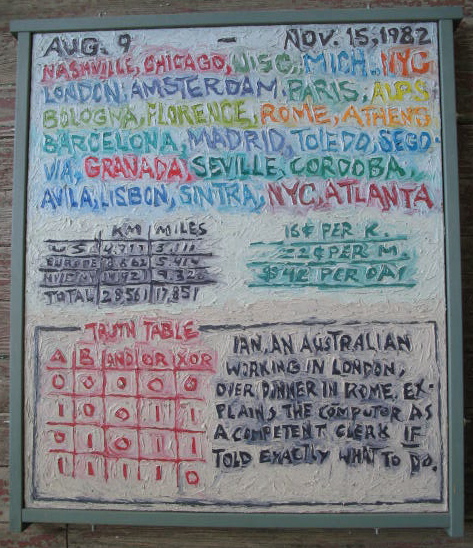 AUG. 9 — NOV. 15, 1982
NASHVILLE, CHICAGO, WISC., MICH., NYC
LONDON, AMSTERDAM, PARIS, ALPS
BOLOGNA, FLORENCE, ROME, ATHENS
BARCELONA, MADRID, TOLEDO, SEGO-
VIA, GRANADA, SEVILLE, CORDOBA,
AVILA, LISBON, SINTRA, NYC, ATLANTA
KM MILES
EUROPE
TOTAL 28,561 17,851
16¢ PER K.
22¢ PER M.
$42 PER DAY
TRUTH TABLE
A B AND OR XOR
0 0 0 0 0
1 0 0 1 1
0 1 0 1 1
1 1 1 1 0
IAN, AN AUSTRALIAN
WORKING IN LONDON,
OVER DINNER IN ROME, EX-
PLAINS THE COMPUTOR AS
A COMPETENT CLERK IF
TOLD EXACTLY WHAT TO DO.